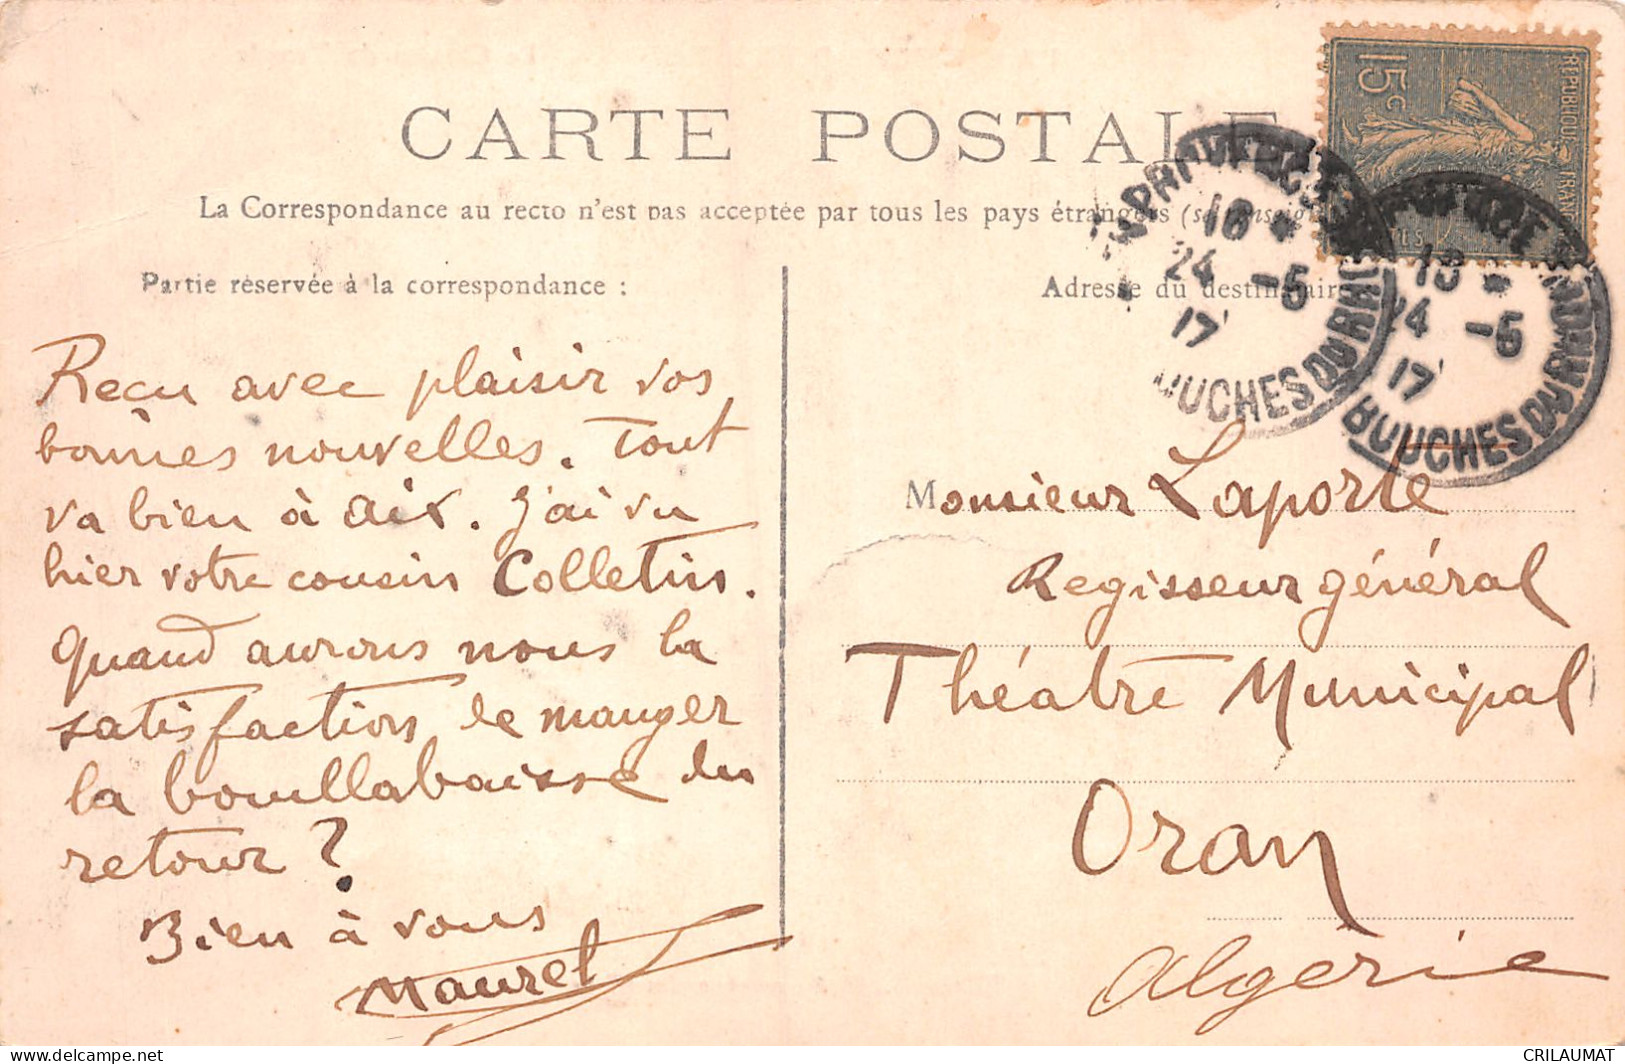 CARTE POSTALE
La Correspondance au recto n'est pas acceptée par tous les pays étrangers
Partie réservée à la correspondance :
Recu avec plaisir vos
bonnes nouvelles. Tout
va bien à aix. J'ai vu
hier votre cousin Colletin.
Quand aurons nous la
satisfaction de manger
la bouillabaisse du
retour ?
Bien à vous
Maurel
Adresse du destinataire
Monsieur Laporte
Regisseur général
Théatre Municipal
Oran
Algérie
15c
REPUBLIQUE FRANÇ
18 *
24 -5
17
BOUCHES DU RHÔNE
18 *
24 -5
17
BOUCHES DU RHÔNE
CRILAUMAT